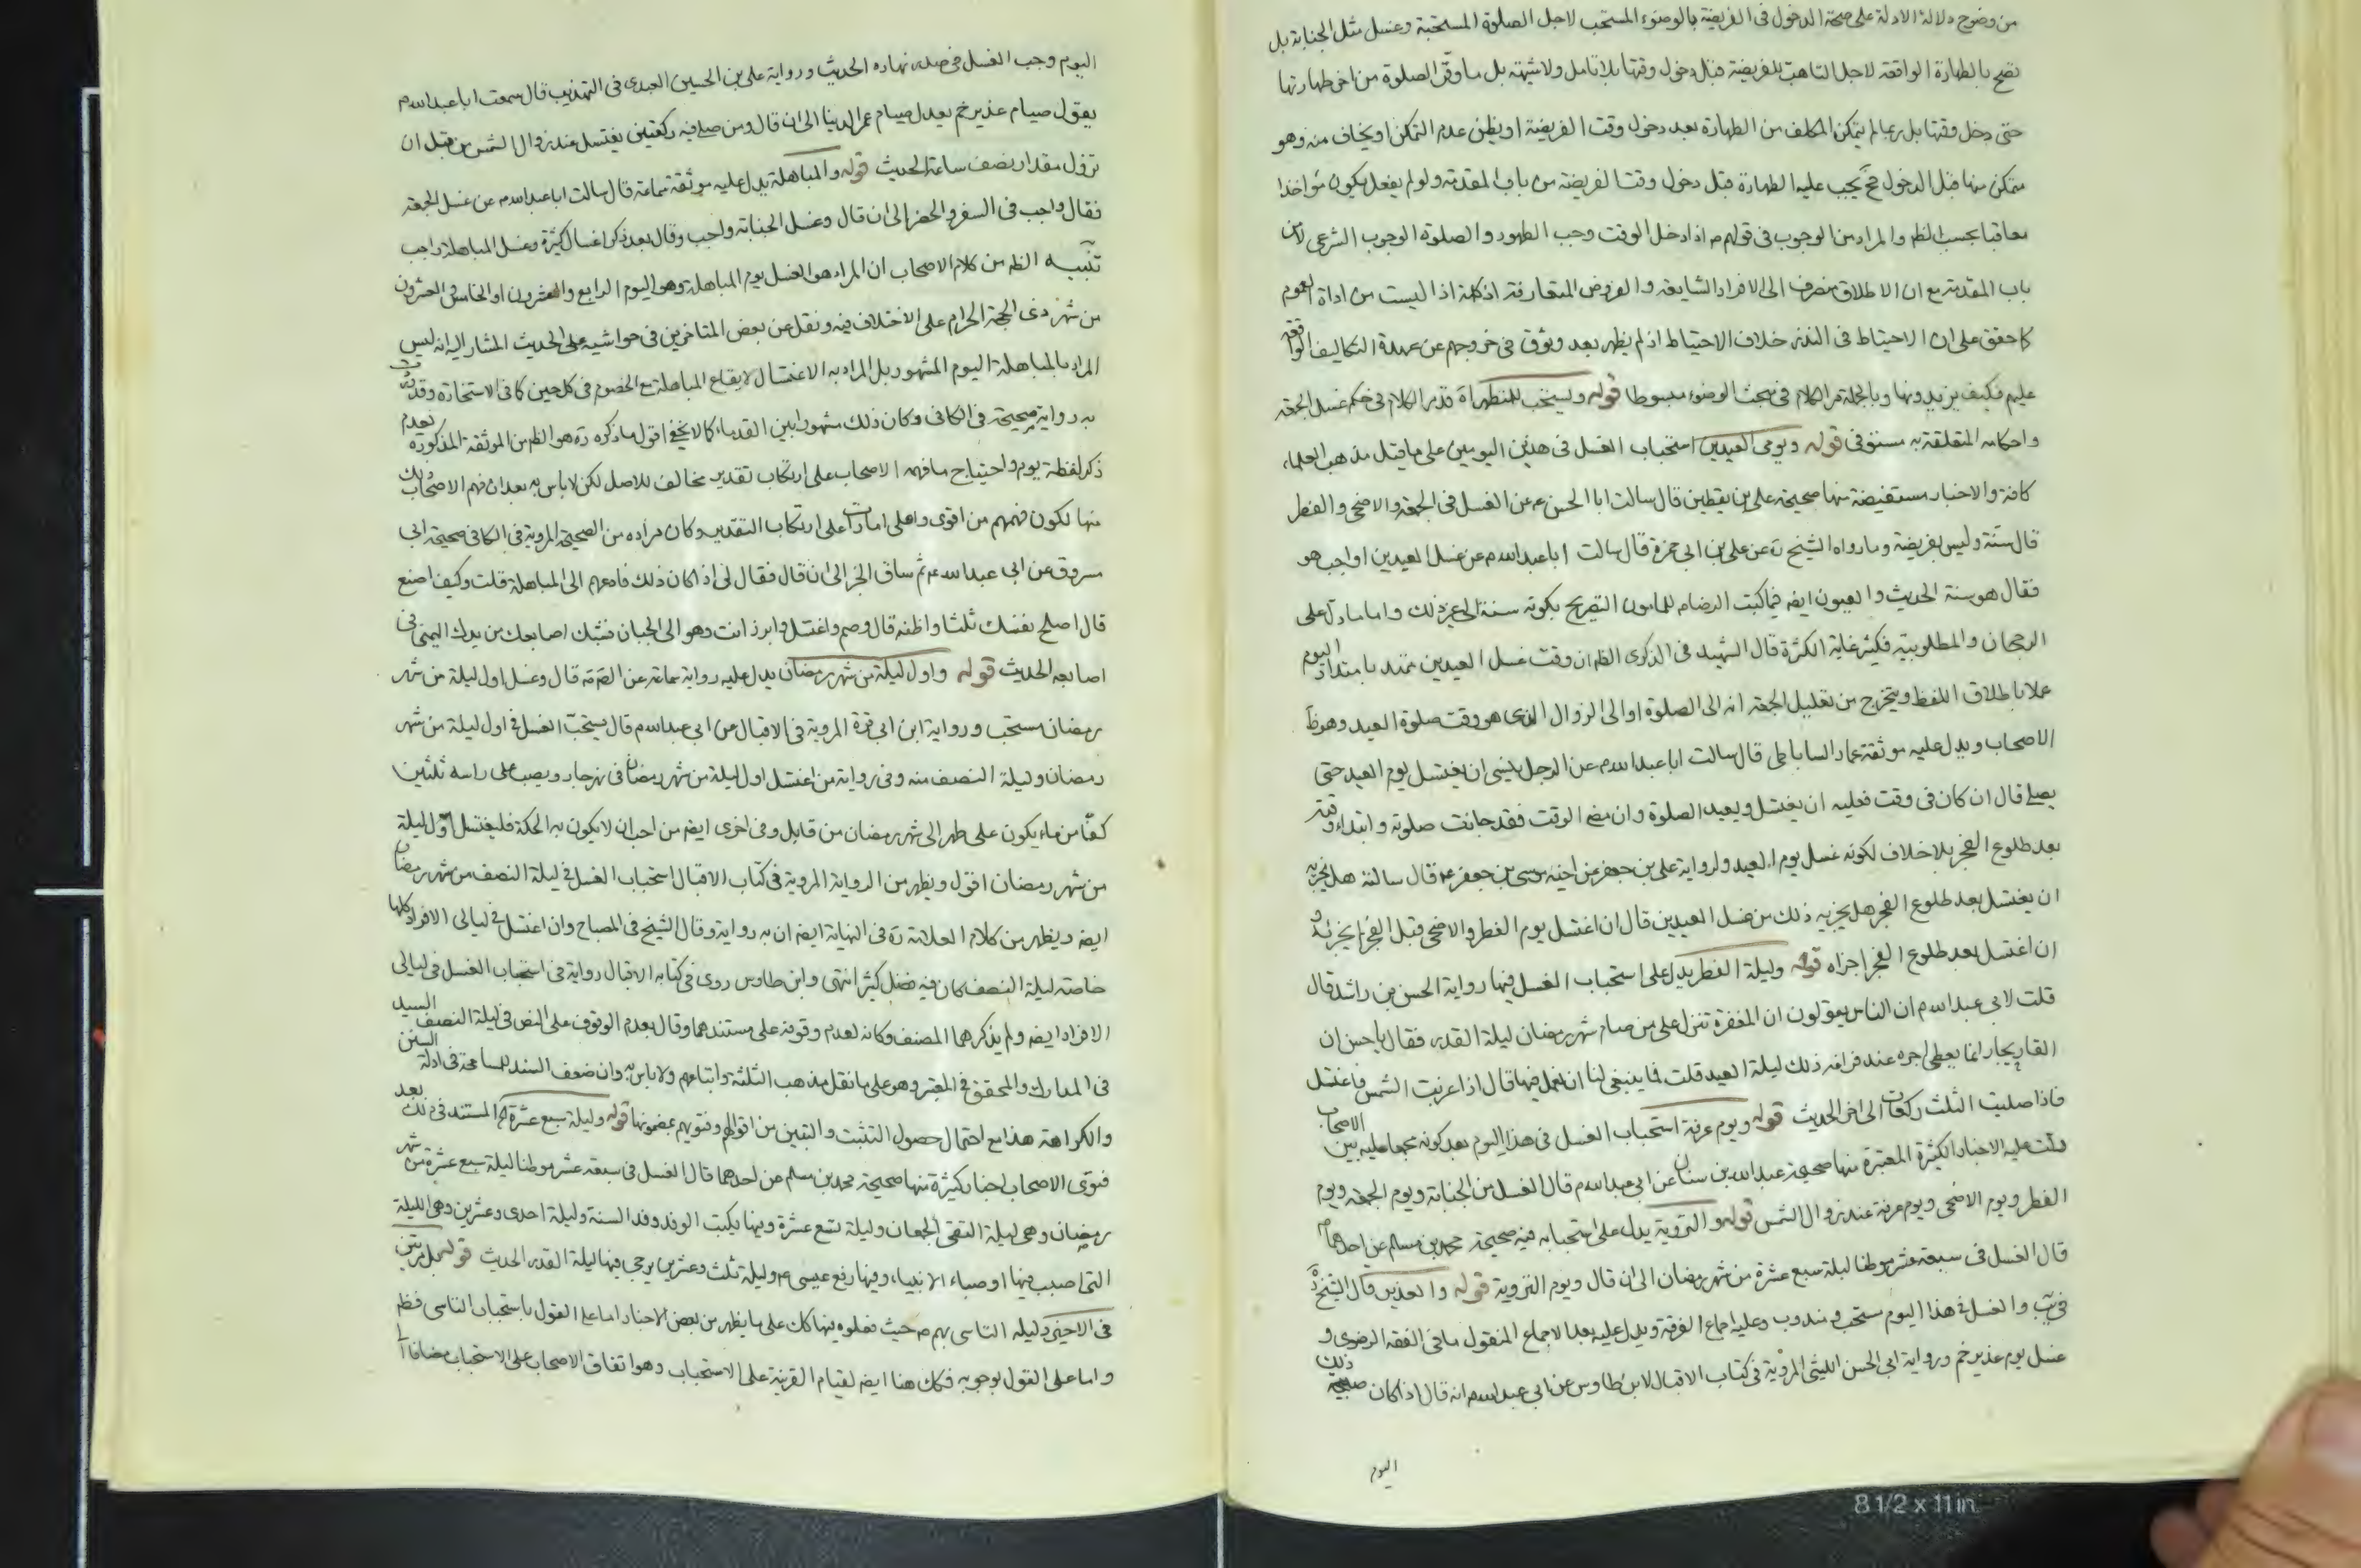 من وضوح دلالة الادلة على صحة الدخول فى الفريضة بالوضوء المستحب لاجل الصلوة المستحبة وغسل مثل الجنابة بل
تصح بالطهارة الواقعة لاجل التاهب للفريضة قبل دخول وقتها بلا تامل ولا شبهة بل ما وقر الصلوة من اخر طهارتها
حتى دخل وقتها بل ربما لم يتمكن المكلف من الطهارة بعد دخول وقت الفريضة او يظن عدم التمكن او يخاف منه وهو
متمكن منها قبل الدخول فح يجب عليه الطهارة قبل دخول وقت الفريضة من باب المقدمة ولو لم يفعل يكون مؤاخذا
معاقبا بحسب الظ والمراد من الوجوب فى قولهم اذا دخل الوقت وجب الطهور والصلوة الوجوب الشرعى لا من
باب المقدمة مع ان الاطلاق منصرف الى الافراد الشايعة والفروض المتعارفة اذ كلمة اذا ليست من اداة العموم
كما حقق على ان الاحتياط فى النذر خلاف الاحتياط اذ لم يظهر بعد وثوق فى خروجهم عن عهدة التكاليف الواقعة
عليهم فكيف يزيدونها وبالجملة مر الكلام فى مبحث الوضوء مبسوطا قوله ويستحب للمنظر اه قد مر الكلام فى حكم غسل الجمعة
واحكامه المتعلقة به مستوفى قوله ويومى العيدين استحباب الغسل فى هذين اليومين على ما قيل مذهب العلماء
كافة والاخبار مستفيضة منها صحيحة على بن يقطين قال سالت ابا الحسن ع عن الغسل فى الجمعة والاضحى والفطر
قال سنة وليس بفريضة وما رواه الشيخ ره عن على بن ابى حمزة قال سالت ابا عبد الله م عن غسل العيدين اواجب هو
فقال هو سنة الحديث والعيون ايضا فيما كتب الرضا م للمامون التصريح بكونه سنة الى غير ذلك واما ما دل على
الرجحان والمطلوبية فكثير غاية الكثرة قال الشهيد فى الذكرى الظ ان وقت غسل العيدين ممتد بامتداد اليوم
عملا باطلاق اللفظ ويتخرج من تعليل الجمعة انه الى الصلوة او الى الزوال الذى هو وقت صلوة العيد وهو ظ
الاصحاب ويدل عليه موثقة عمار الساباطى قال سالت ابا عبد الله م عن الرجل ينسى ان يغتسل يوم العيد حتى
يصلى قال ان كان فى وقت فعليه ان يغتسل ويعيد الصلوة وان مضى الوقت فقد جازت صلوته وابتداء وقته
بعد طلوع الفجر بلا خلاف لكونه غسل يوم العيد ولرواية على بن جعفر عن اخيه موسى بن جعفر ع قال سالته هل يجزيه
ان يغتسل بعد طلوع الفجر هل يجزيه ذلك من غسل العيدين قال ان اغتسل يوم الفطر والاضحى قبل الفجر لم يجزئه و
ان اغتسل بعد طلوع الفجر اجزاه قوله وليلة الفطر يدل على استحباب الغسل فيها رواية الحسن بن راشد قال
قلت لابى عبد الله م ان الناس يقولون ان المغفرة تنزل على من صام شهر رمضان ليلة القدر فقال يا حسن ان
القاريجار انما يعطى اجره عند فراغه ذلك ليلة العيد قلت فما ينبغى لنا ان نعمل فيها قال اذا غربت الشمس فاغتسل
فاذا صليت الثلث ركعات الى اخر الحديث قوله ويوم عرفة استحباب الغسل فى هذا اليوم بعد كونه مجمعا عليه بين الاصحاب
دلت عليه الاخبار الكثيرة المعتبرة منها صحيحة عبد الله بن سنان عن ابى عبد الله م قال الغسل من الجنابة ويوم الجمعة ويوم
الفطر ويوم الاضحى ويوم عرفة عند زوال الشمس قوله والتروية يدل على استحبابه فيه صحيحة محمد بن مسلم عن احدهما م
قال الغسل فى سبعة عشر موطنا ليلة سبع عشرة من شهر رمضان الى ان قال ويوم التروية قوله والغدير قال الشيخ ره
فى يب والغسل فى هذا اليوم مستحب مندوب وعليه اجماع الفرقة ويدل عليه بعد الاجماع المنقول ما فى الفقه الرضوى و
غسل يوم غدير خم ورواية ابى الحسن الليثى المروية فى كتاب الاقبال لابن طاوس عن ابى عبد الله م انه قال اذا كان صبيحة ذلك
اليوم
اليوم وجب الغسل فى صدر نهاره الحديث ورواية على بن الحسين العبدى فى التهذيب قال سمعت ابا عبد الله م
يقول صيام غدير خم يعدل صيام عمر الدنيا الى ان قال ومن صلى فيه ركعتين يغتسل عند زوال الشمس من قبل ان
تزول مقدار نصف ساعة الحديث قوله والمباهلة يدل عليه موثقة سماعة قال سالت ابا عبد الله م عن غسل الجمعة
فقال واجب فى السفر والحضر الى ان قال وغسل الجنابة واجب وقال بعد ذكر اغسال كثيرة وغسل المباهلة واجب
تنبيه الظ من كلام الاصحاب ان المراد هو الغسل يوم المباهلة وهو اليوم الرابع والعشرون او الخامس والعشرون
من شهر ذى الحجة الحرام على الاختلاف فيه ونقل عن بعض المتاخرين فى حواشيه على الحديث المشار اليه انه ليس
المراد بالمباهلة اليوم المشهور بل المراد به الاغتسال لايقاع المباهلة مع الخصوم فى كل حين كما فى الاستخارة وقد وردت
به رواية صحيحة فى الكافى وكان ذلك مشهورا بين القدماء كما لا يخفى اقول ما ذكره ره هو الظ من الموثقة المذكورة لعدم
ذكر لفظة يوم واحتياج ما فهمه الاصحاب على ارتكاب تقدير مخالف للاصل لكن لا باس به بعد ان فهم الاصحاب ذلك
منها لكون فهمهم من اقوى واعلى امارات على ارتكاب التقدير وكان مراده من الصحيحة المروية فى الكافى صحيحة ابى
مسروق عن ابى عبد الله ع ثم ساق الخبر الى ان قال فقال لى اذا كان ذلك فادعهم الى المباهلة قلت وكيف اصنع
قال اصلح نفسك ثلثا واظنه قال وصم واغتسل وابرز انت وهو الى الجبان فشبك اصابعك من يدك اليمنى فى
اصابعه الحديث قوله واول ليلة من شهر رمضان يدل عليه رواية سماعة عن الصم قال وغسل اول ليلة من شهر
رمضان مستحب ورواية ابن ابى قرة المروية فى الاقبال عن ابى عبد الله م قال يستحب الغسل فى اول ليلة من شهر
رمضان وليلة النصف منه وفى رواية من اغتسل اول ليلة من شهر رمضان فى نهر جار ويصب على راسه ثلثين
كفا من ماء يكون على طهر الى شهر رمضان من قابل وفى اخرى ايضا من احب ان لا يكون به الحكة فليغتسل اول ليلة
من شهر رمضان اقول ويظهر من الرواية المروية فى كتاب الاقبال استحباب الغسل فى ليلة النصف من شهر رمضان
ايضا ويظهر من كلام العلامة ره فى النهاية ايضا ان به رواية وقال الشيخ فى المصباح وان اغتسل فى ليالى الافراد كلها
خاصة ليلة النصف كان فيه فضل كثير انتهى وابن طاوس روى فى كتابه الاقبال رواية فى استحباب الغسل فى ليالى
الافراد ايضا ولم يذكرهما المصنف وكانه لعدم وقوفه على مستندهما وقال بعدم الوقوف على النص فى ليلة النصف السيد
فى المدارك والمحقق فى المعتبر وهو على ما نقل مذهب الثلثة واتباعهم ولا باس به وان ضعف السند للمسامحة فى ادلة السنن
والكراهة هذا مع احتمال حصول التثبت والتبين من اقوالهم وفتويهم بمضمونها قوله وليلة سبع عشرة اه المستند فى ذلك بعد
فتوى الاصحاب اخبار كثيرة منها صحيحة محمد بن مسلم عن احدهما قال الغسل فى سبعة عشر موطنا ليلة سبع عشرة من شهر
رمضان وهى ليلة التقى الجمعان وليلة تسع عشرة وفيها يكتب الوفد وفد السنة وليلة احدى وعشرين وهى الليلة
التى اصيب فيها اوصياء الانبياء وفيها رفع عيسى م وليلة ثلث وعشرين يرجى فيها ليلة القدر الحديث قوله بل مرتين
فى الاخير دليله التاسى بهم م حيث فعلوه فيها كك على ما يظهر من بعض الاخبار اما على القول باستحباب التاسى فظ
واما على القول بوجوبه فكك هنا ايضا لقيام القرينة على الاستحباب وهو اتفاق الاصحاب على الاستحباب مضافا